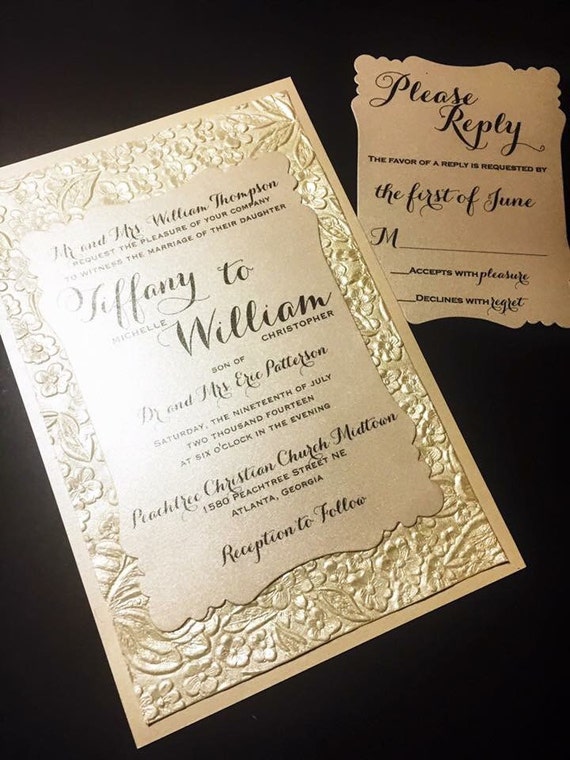 Mr and Mrs William Thompson
request the pleasure of your company
to witness the marriage of their daughter
Tiffany to
Michelle
William
Christopher
son of
Dr and Mrs Eric Patterson
Saturday, the nineteenth of July
two thousand fourteen
at six o'clock in the evening
Peachtree Christian Church Midtown
1580 Peachtree Street NE
Atlanta, Georgia
Reception to Follow
Please
Reply
The favor of a reply is requested by
the first of June
M
Accepts with pleasure
Declines with regret